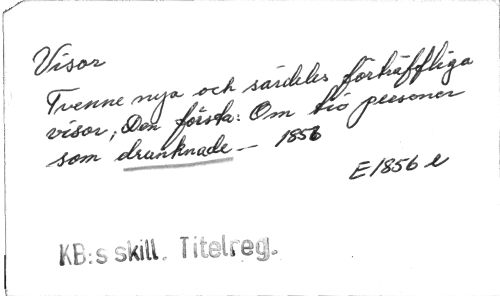 Visor
Tvenne nya och särdeles förträffliga
visor, Den första: Om tio personer
som drunknade – 1856
E1856 e
KB:s skill. Titelreg.